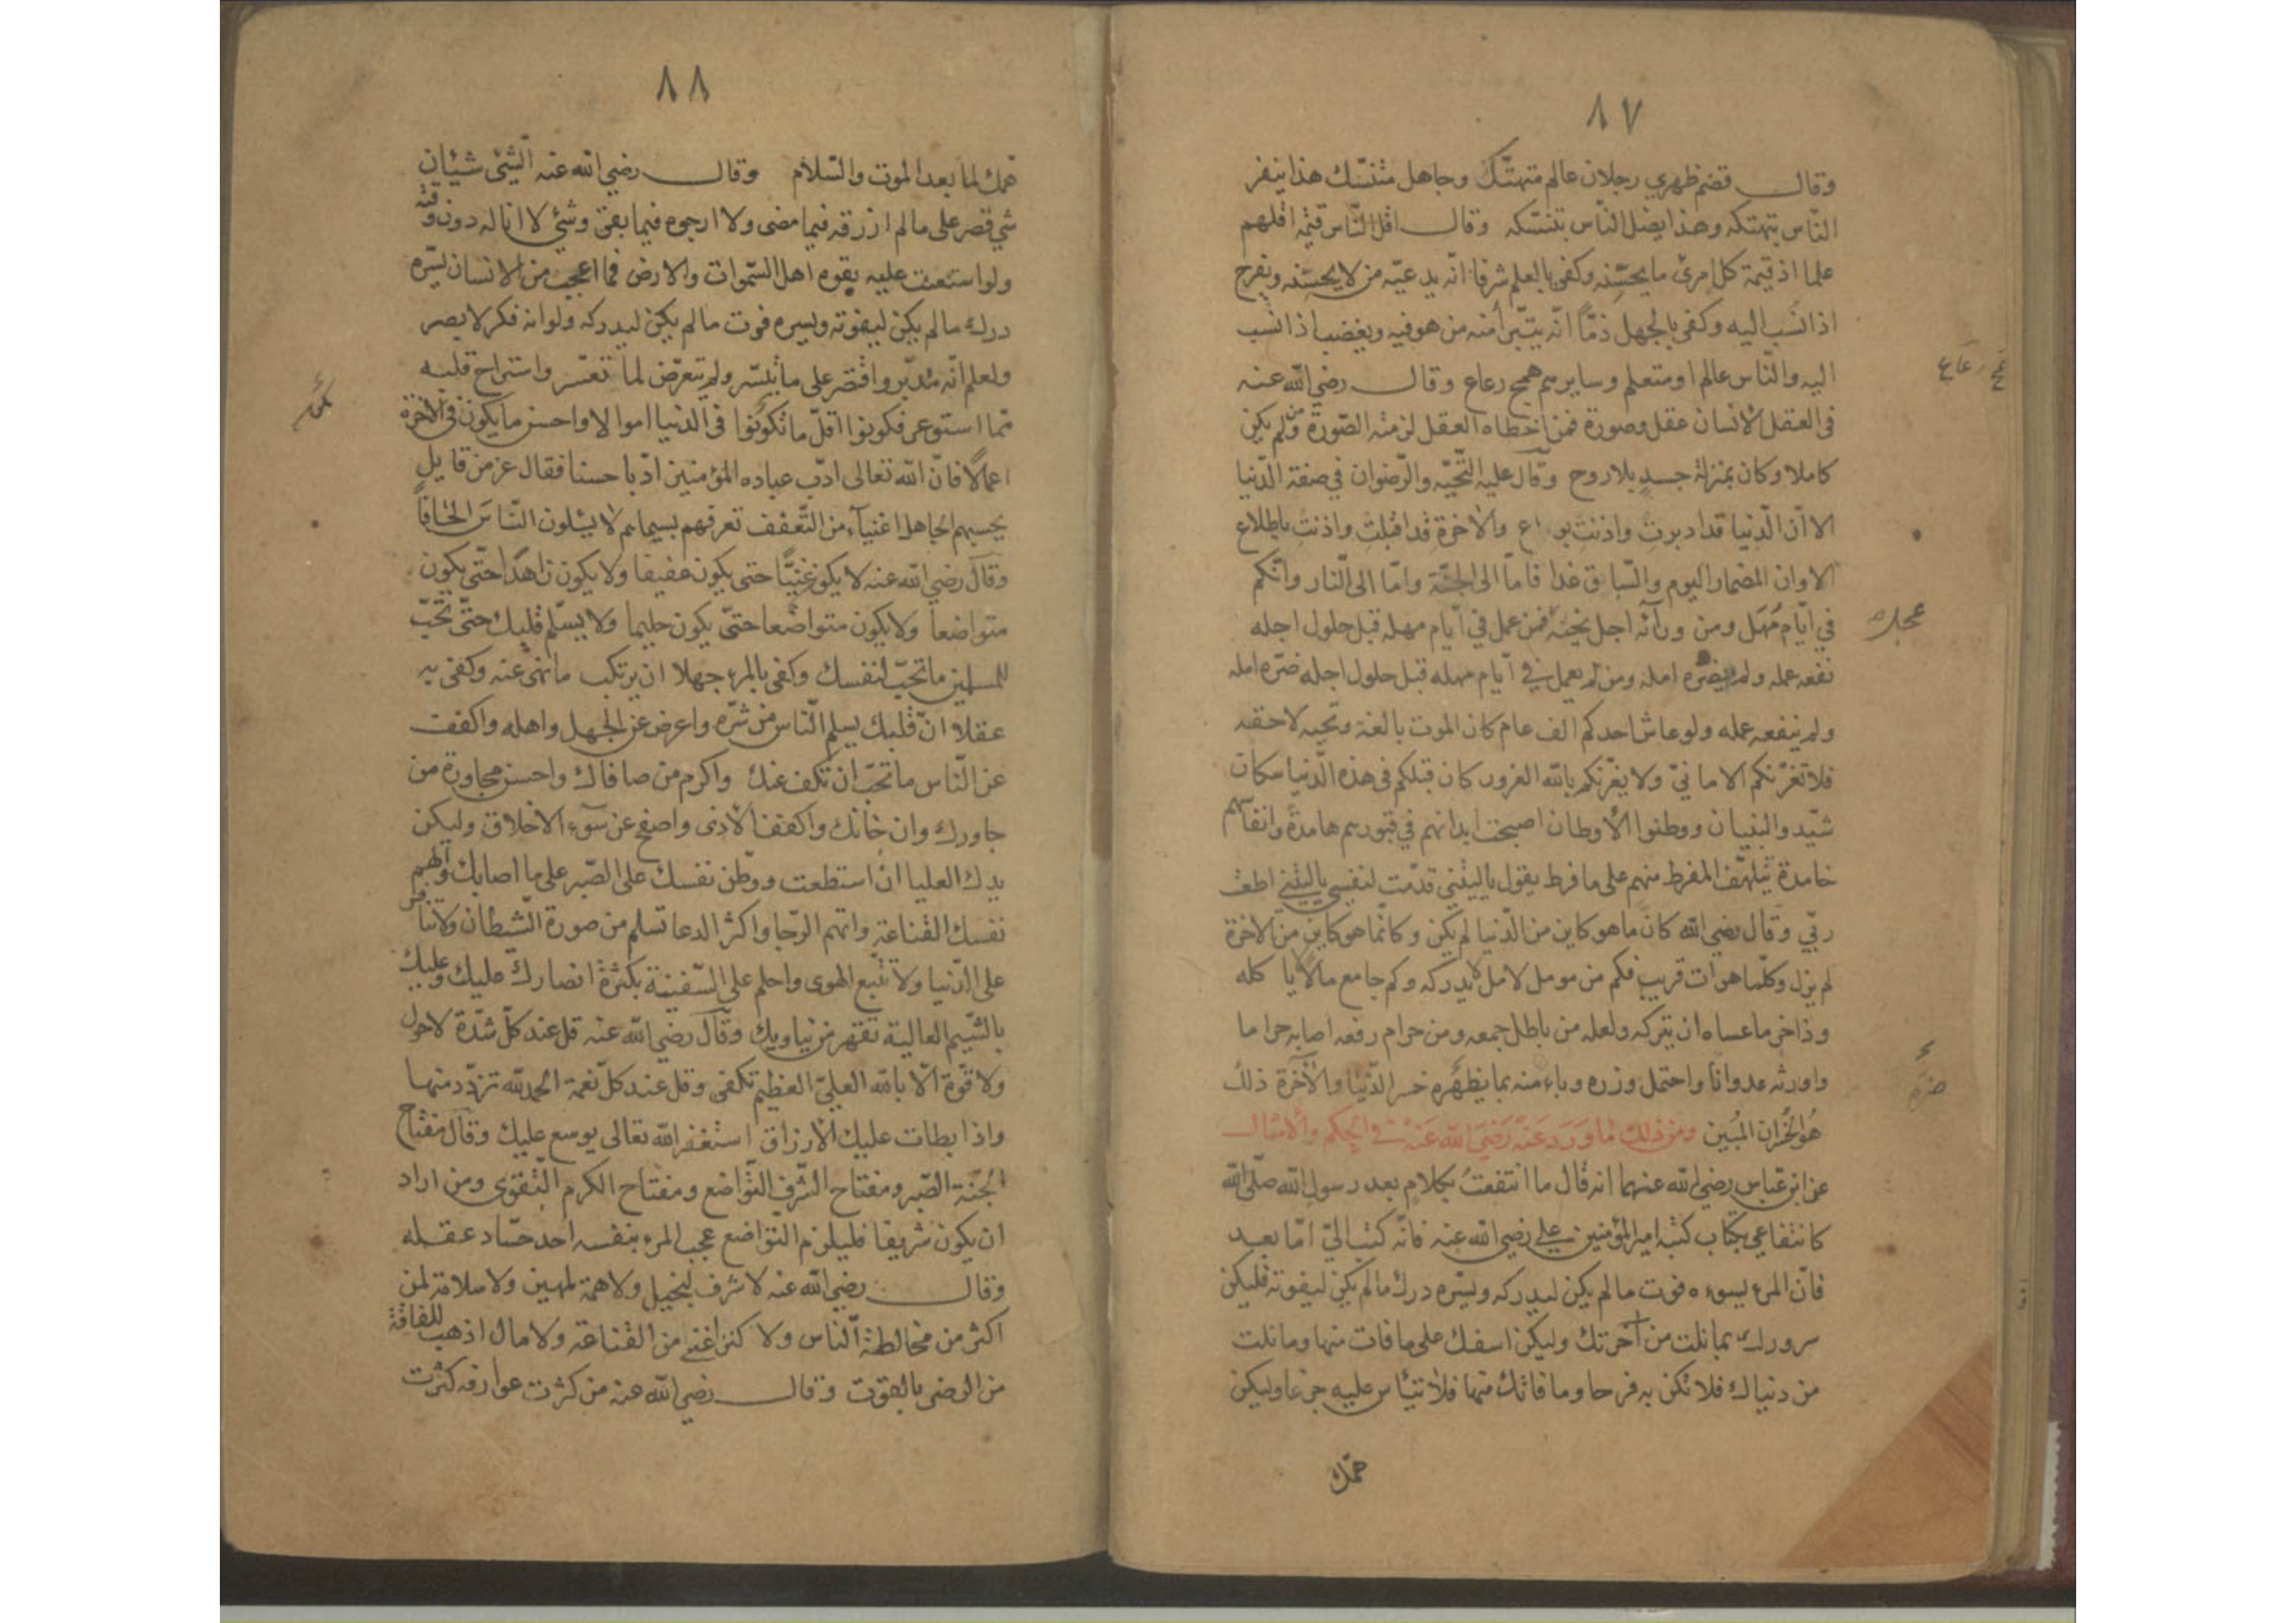 ٨٧
وقال قصم ظهري رجلان عالم متهتك وجاهل متنسك هذا ينفر
الناس بتهتكه وهذا يضل الناس بتنسكه وقال اقل الناس قيمة اقلهم
علما اذ قيمة كل امرئ ما يحسنه وكفى بالعلم شرفا انه يدعيه من لا يحسنه ويفرح
اذا نسب اليه وكفى بالجهل ذمّاً انه يتبرأ منه من هو فيه ويغضب اذا نسب
اليه والناس عالم او متعلم وسايرهم همج رعاع وقال رضي الله عنه
في العقل الانسان عقل وصورة فمن اخطاه العقل لزمته الصورة ولم يكن
كاملا وكان بمنزلة جسدٍ بلا روح وقال عليه التحيّه والرّضوان في صفة الدّنيا
الا انّ الدّنيا قد ادبرت واذنت والاخرة قد اقبلت واذنت باطلاع
الا وان المضمار اليوم والسّباق غدا فامّا الى الجنّة وامّا الى النار وانّكم
في ايّام مَهَل ومن ورآئه اجل يحثه فمن عمل في ايّام مهله قبل حلول اجله
نفعه عمله ولم يضرّه امله ومن لم يعمل في ايّام مهله قبل حلول اجله ضرّه امله
ولم ينفعه عمله ولو عاش احدكم الف عام كان الموت بالغه ونحبه لاحقه
فلا تغرّنكم الامانيّ ولا يغرّنكم بالله الغرور كان قبلكم في هذه الدّنيا سكان
شيّدوا البنيان ووطنوا الأوطان اصبحت ابدانهم في قبورهم هامدة وانفاسهم
خامدة يتلهّف المفرط منهم على ما فرط يقول ياليتني قدّمت لنفسي ياليتني اطعت
ربّي وقال رضي الله كانّ ما هو كاين من الدّنيا لم يكن وكانّما هو كاين من الاخرة
لم يزل وكلّما هو آت قريب فكم من مومل لامل لا يدركه وكم جامع مالا يا كله
وذاخر ما عساه ان يتركه ولعله من باطل جمعه ومن حرام رفعه اصابه حراما
واورثه عدوانا واحتمل وزره وباء منه بما يظهره خسر الدّنيا والآخرة ذلك
هُوَ الخُسران المُبين ومن ذلك مَا وَرَدَ عَنْه رَضِيَ الله عَنْهُ في الحِكم والأمثال
عن ابن عبّاس رضي الله عنهما انه قال ما انتفعتُ بكلام بعد رسول الله صلّى الله
كانتفاعي بكتاب كتبه امير المؤمنين علي رضي الله عنه فانّه كتب اليّ امّا بعد
فانّ المرء يسوءه فوت ما لم يكن ليدركه ويسّره درك ما لم يكن ليفوته فليكن
سرورك بما نلت من آخرتك وليكن اسفك على ما فات منها وما نلت
من دنياك فلا تكن به فرحا وما فاتك منها فلا تتئاس عليه جزعا وليكن
همّك
همج رعاع
٨٨
همك لما بعد الموت والسّلام وقال رضي الله عنه الشيئ شيئان
شي قصر على ما لم ارزقه فيما مضى ولا ارجوه فيما بقي وشيئ لا اناله دون وقته
ولو استعنت عليه بقوه اهل السّموات والارض فما اعجب من الانسان يسّره
درك ما لم يكن ليفوته ويسوه فوت ما لم يكن ليدركه ولو انه فكر لابصر
ولعلم انّه مُدبّر واقتصر على ما تيسّر ولم يتعرّض لما تعسّر واستراح قلبه
ممّا استوعر فكونوا اقلّ ما تكونوا في الدنيا اموالا واحسن ما يكون في الآخرة
اعمالاً فانّ الله تعالى ادّب عباده المؤمنين ادبا حسنا فقال عز من قايل
يحسبهم الجاهل اغنيآء من التّعفف تعرفهم بسيماهم لا يسئلون النّاسَ الحافاً
وقال رضي الله عنه لا يكون غنيّاً حتى يكون عفيفا ولا يكون زاهداً حتّى يكون
متواضعا ولا يكون متواضعا حتّى يكون حليما ولا يسلّم قلبك حتّى تحبّ
للمسلمين ما تحبّ لنفسك وكفى بالمرء جهلا ان يرتكب ما نهى عنه وكفى به
عقلا انّ قلبك يسلم النّاس من شرّه واعرض عن الجهل واهله واكفف
عن النّاس ما تحبّ ان تكف عنك واكرم من صافاك واحسن مجاورة من
جاورك وان خانك واكفف الأذى واصفح عن سوء الاخلاق وليكن
يدك العليا ان استطعت ووطّن نفسك على الصّبر على ما اصابك والهم
نفسك القناعة واتهم الرّجا واكثر الدعا تسلم من صورة الشّيطان ولا تنافس
على الدّنيا ولا تتّبع الهوى واحلم على السّفيه بكثرة انصارك عليك وعليك
بالشّيم العالية تقهر من يناويك وقال رضي الله عنه قل عند كلّ شدّة لا حول
ولا قوّة الّا بالله العليّ العظيم تكفى وقل عند كلّ نعمة الحمد لله تزدد منها
واذا بطات عليك الأرزاق استغفر الله تعالى يوسع عليك وقال مفتاح
الجنّة الصّبر ومفتاح الشّرف التّواضع ومفتاح الكرم التّقوى ومن اراد
ان يكون شريفا فليلزم التواضع عجب المرء بنفسه احد حسّاد عقله
وقال رضي الله عنه لا شرف لبخيل ولا همة لمهين ولا سلامة لمن
اكثر من مخالطة النّاس ولا كنز اغنى من القناعة ولا مال اذهب للفاقة
من الرضى بالقوت وقال رضي الله عنه من كثرت عوارفه كثرت